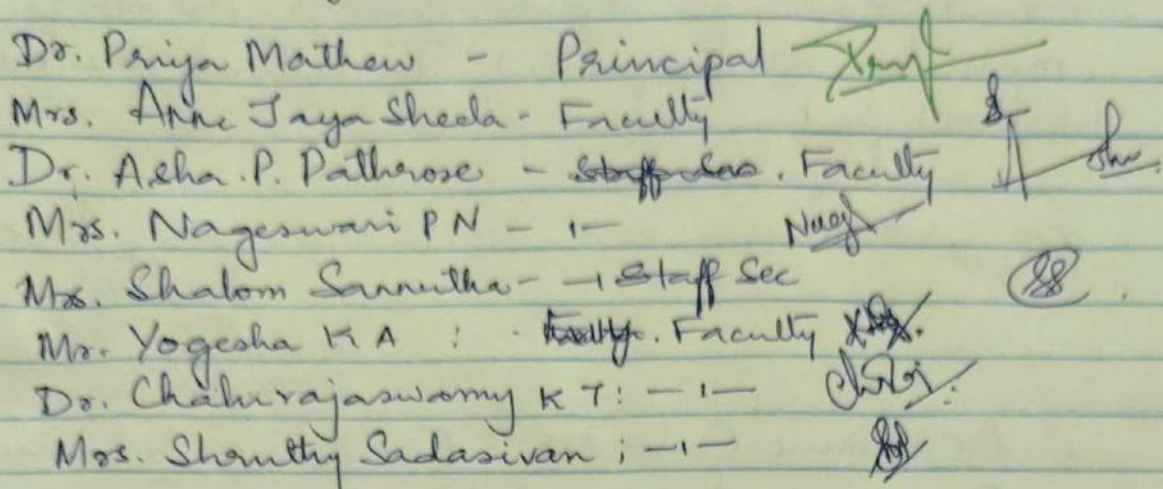 Dr. Priya Mathew - Principal
Mrs. Anne Jaya Sheela - Faculty
Dr. Asha. P. Pathrose - Faculty
Mrs. Nageswari P N - 〃
Mrs. Shalom Sannutha - Staff Sec
Mr. Yogesha K A : Faculty
Dr. Chaluvrajaswamy K T : 〃
Mrs. Shruthy Sadasivan : 〃